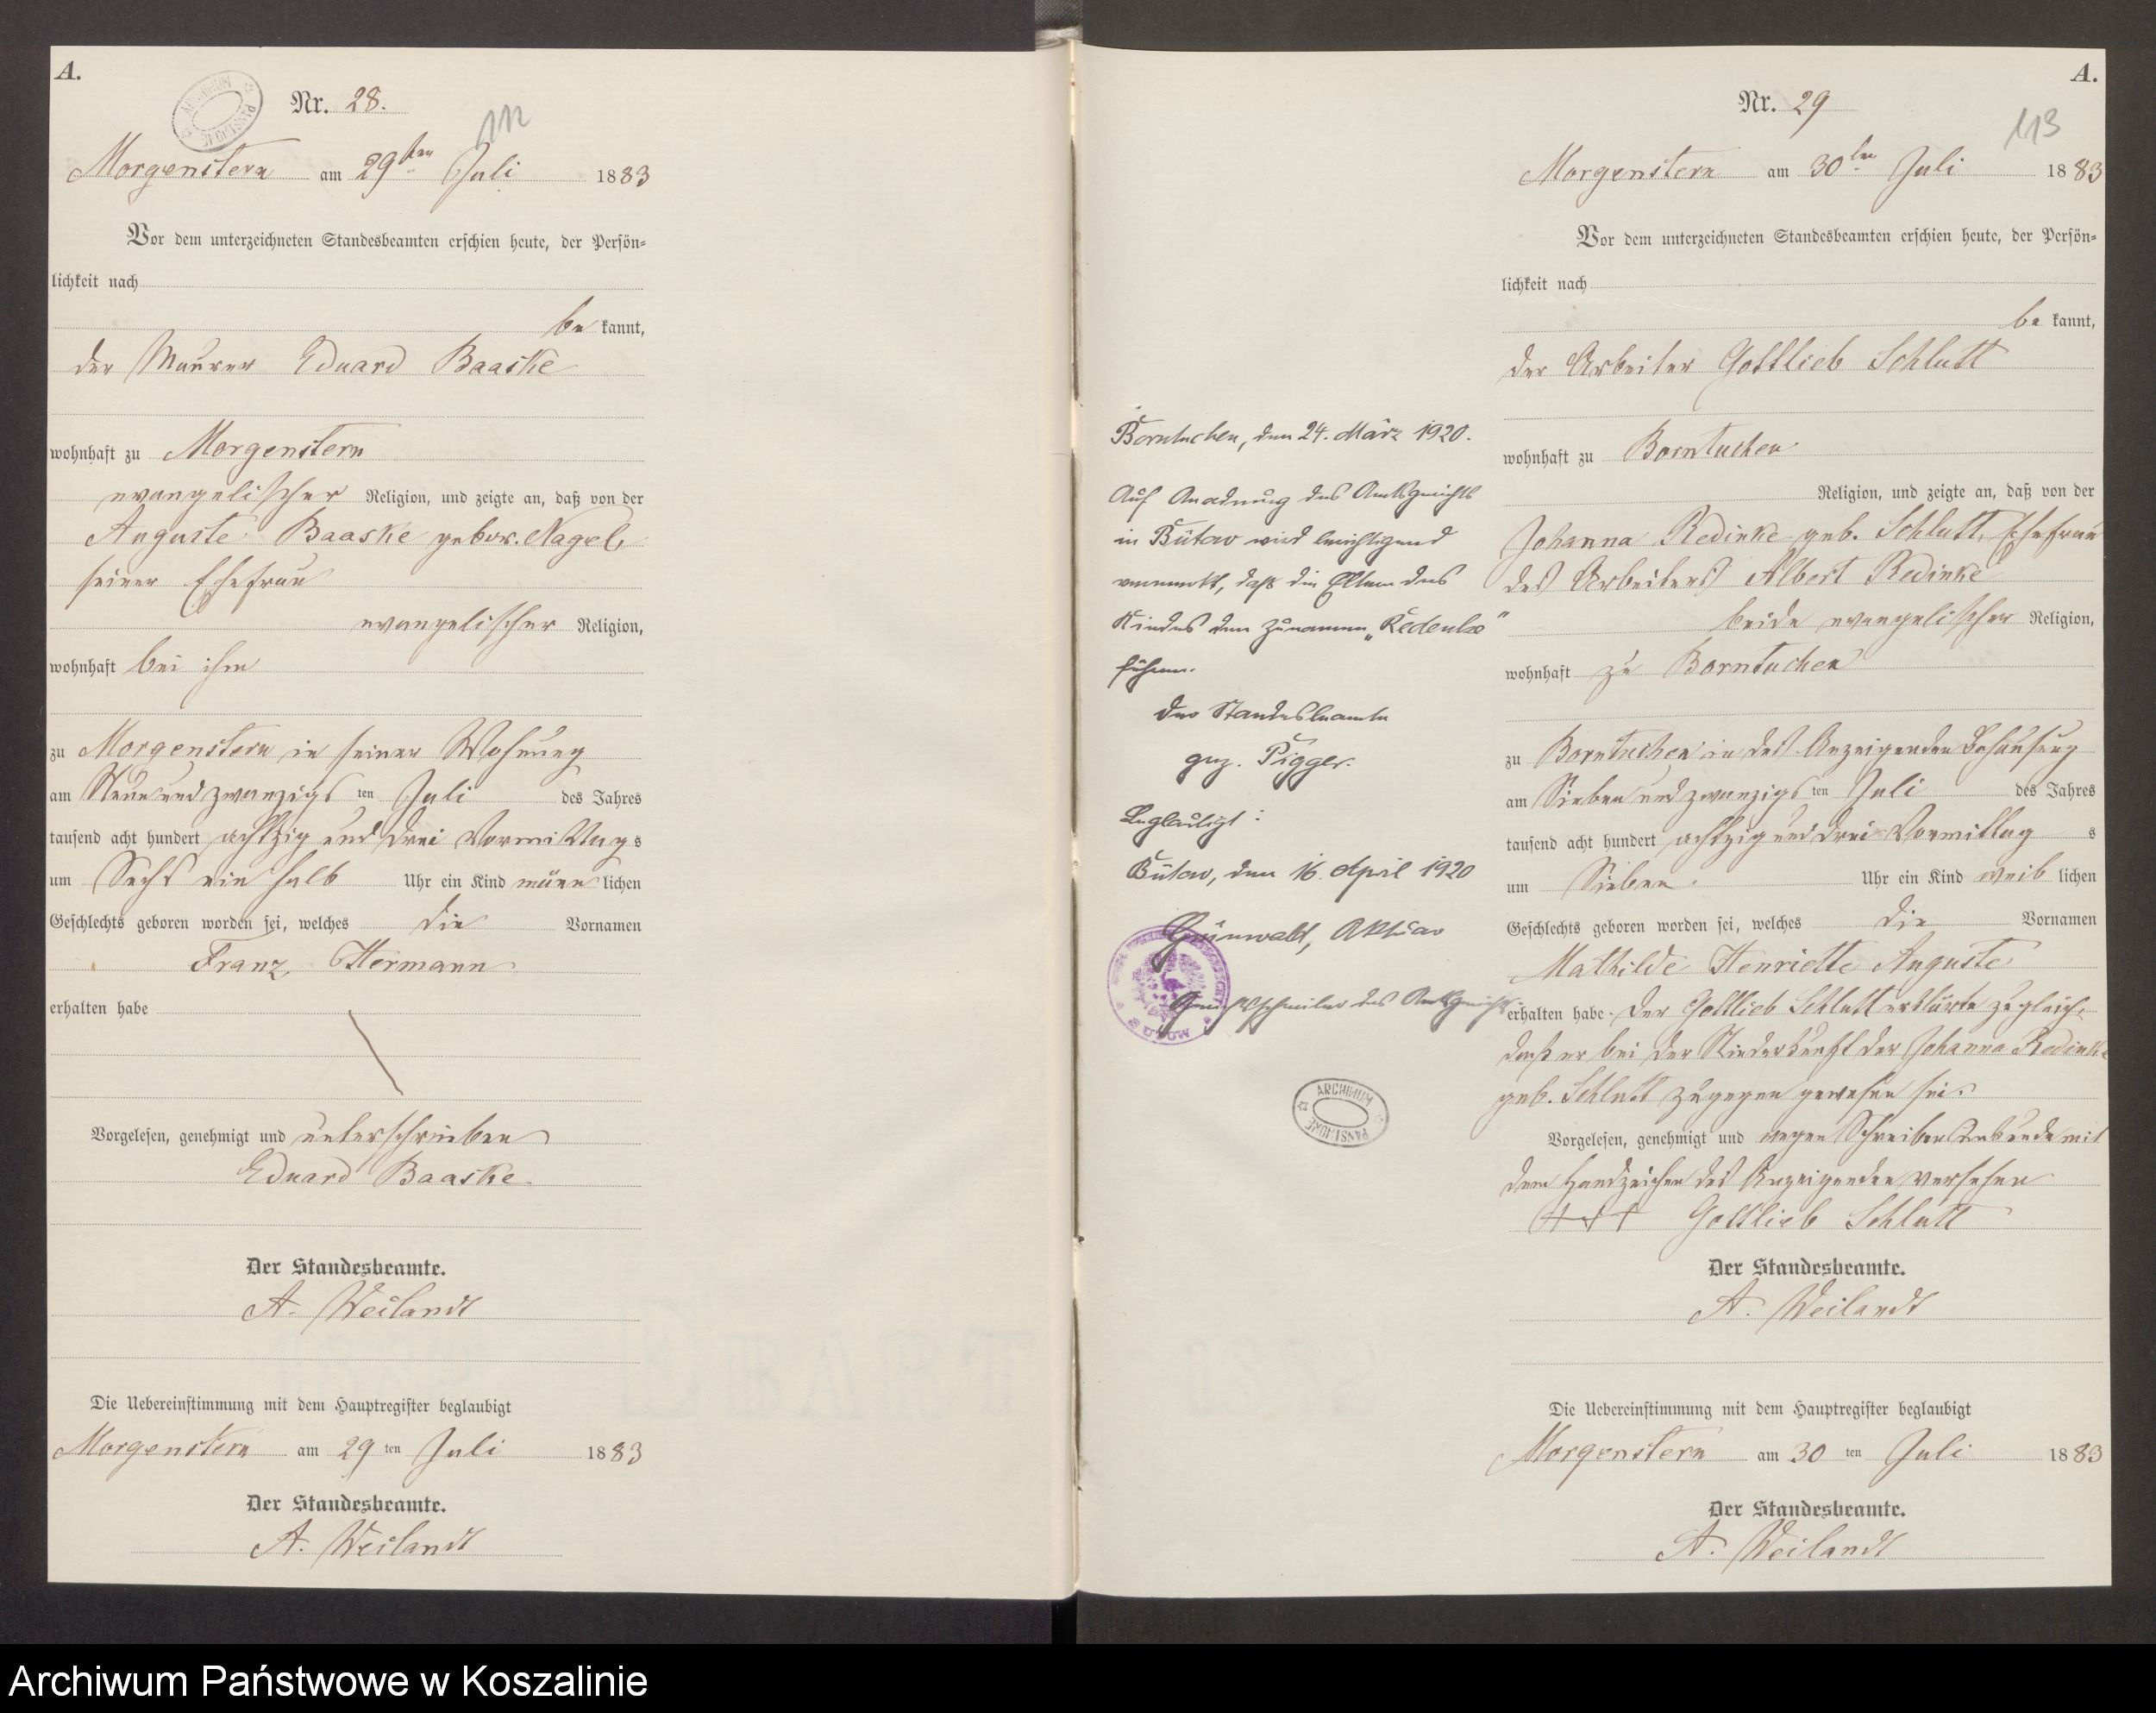 A.
Nr. 28.
112
Morgenstern am 29ten Juli 1883
Vor dem unterzeichneten Standesbeamten erschien heute, der Persön=
lichkeit nach
be kannt,
der Maurer Eduard Baaske
wohnhaft zu Morgenstern
evangelischer Religion, und zeigte an, daß von der
Auguste Baaske gebor. Nagel,
seiner Ehefrau
evangelischer Religion,
wohnhaft bei ihm
zu Morgenstern in seiner Wohnung
am Neunundzwanzigs ten Juli des Jahres
tausend acht hundert achtzig und drei Vormittag s
um Sechs ein halb Uhr ein Kind männ lichen
Geschlechts geboren worden sei, welches die Vornamen
Franz, Hermann
erhalten habe
Vorgelesen, genehmigt und unterschrieben
Eduard Baaske.
Der Standesbeamte.
A. Weilandt
Die Uebereinstimmung mit dem Hauptregister beglaubigt
Morgenstern am 29 ten Juli 1883
Der Standesbeamte.
A. Weilandt
Borntuchen, den 24. März 1920.
Auf Anordnung des Amtsgerichts
in Bütow wird berichtigend
vermerkt, daß die Eltern des
Kindes den Zunamen „Redenke"
führen.
Der Standesbeamte
gez. Pigger.
Beglaubigt:
Bütow, den 16. April 1920
Grünwald, Aktuar
Gerichtsschreiber des Amtsgerichts.
ARCHIWUM PAŃSTWOWE
A.
Nr. 29
113
Morgenstern am 30ten Juli 1883
Vor dem unterzeichneten Standesbeamten erschien heute, der Persön=
lichkeit nach
be kannt,
der Arbeiter Gottlieb Schlutt
wohnhaft zu Borntuchen
Religion, und zeigte an, daß von der
Johanna Redinke geb. Schlutt, Ehefrau
des Arbeiters Albert Redinke
beide evangelischer Religion,
wohnhaft zu Borntuchen
zu Borntuchen in des Anzeigenden Behausung
am Siebenundzwanzigs ten Juli des Jahres
tausend acht hundert achtzig und drei Vormittag s
um Sieben Uhr ein Kind weib lichen
Geschlechts geboren worden sei, welches die Vornamen
Mathilde Henriette Auguste
erhalten habe. Der Gottlieb Schlutt erklärte zugleich,
daß er bei der Niederkunft der Johanna Redinke
geb. Schlutt zugegen gewesen sei.
Vorgelesen, genehmigt und wegen Schreibensunkunde mit
dem Handzeichen des Anzeigenden versehen
+++ Gottlieb Schlutt
Der Standesbeamte.
A. Weilandt
Die Uebereinstimmung mit dem Hauptregister beglaubigt
Morgenstern am 30 ten Juli 1883
Der Standesbeamte.
A. Weilandt
Archiwum Państwowe w Koszalinie